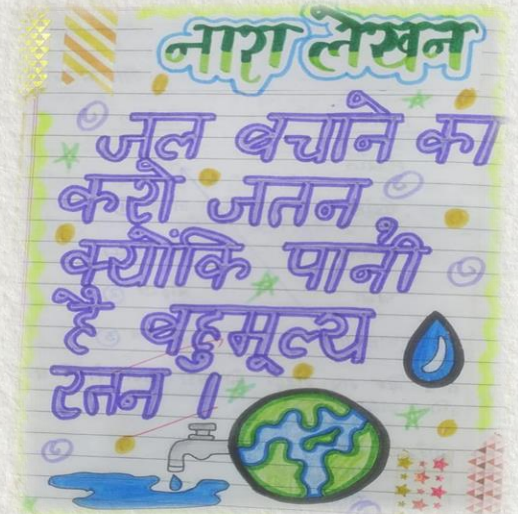 नारा लेखन
जल बचाने का
करो जतन,
क्योंकि पानी
है बहुमूल्य
रतन ।